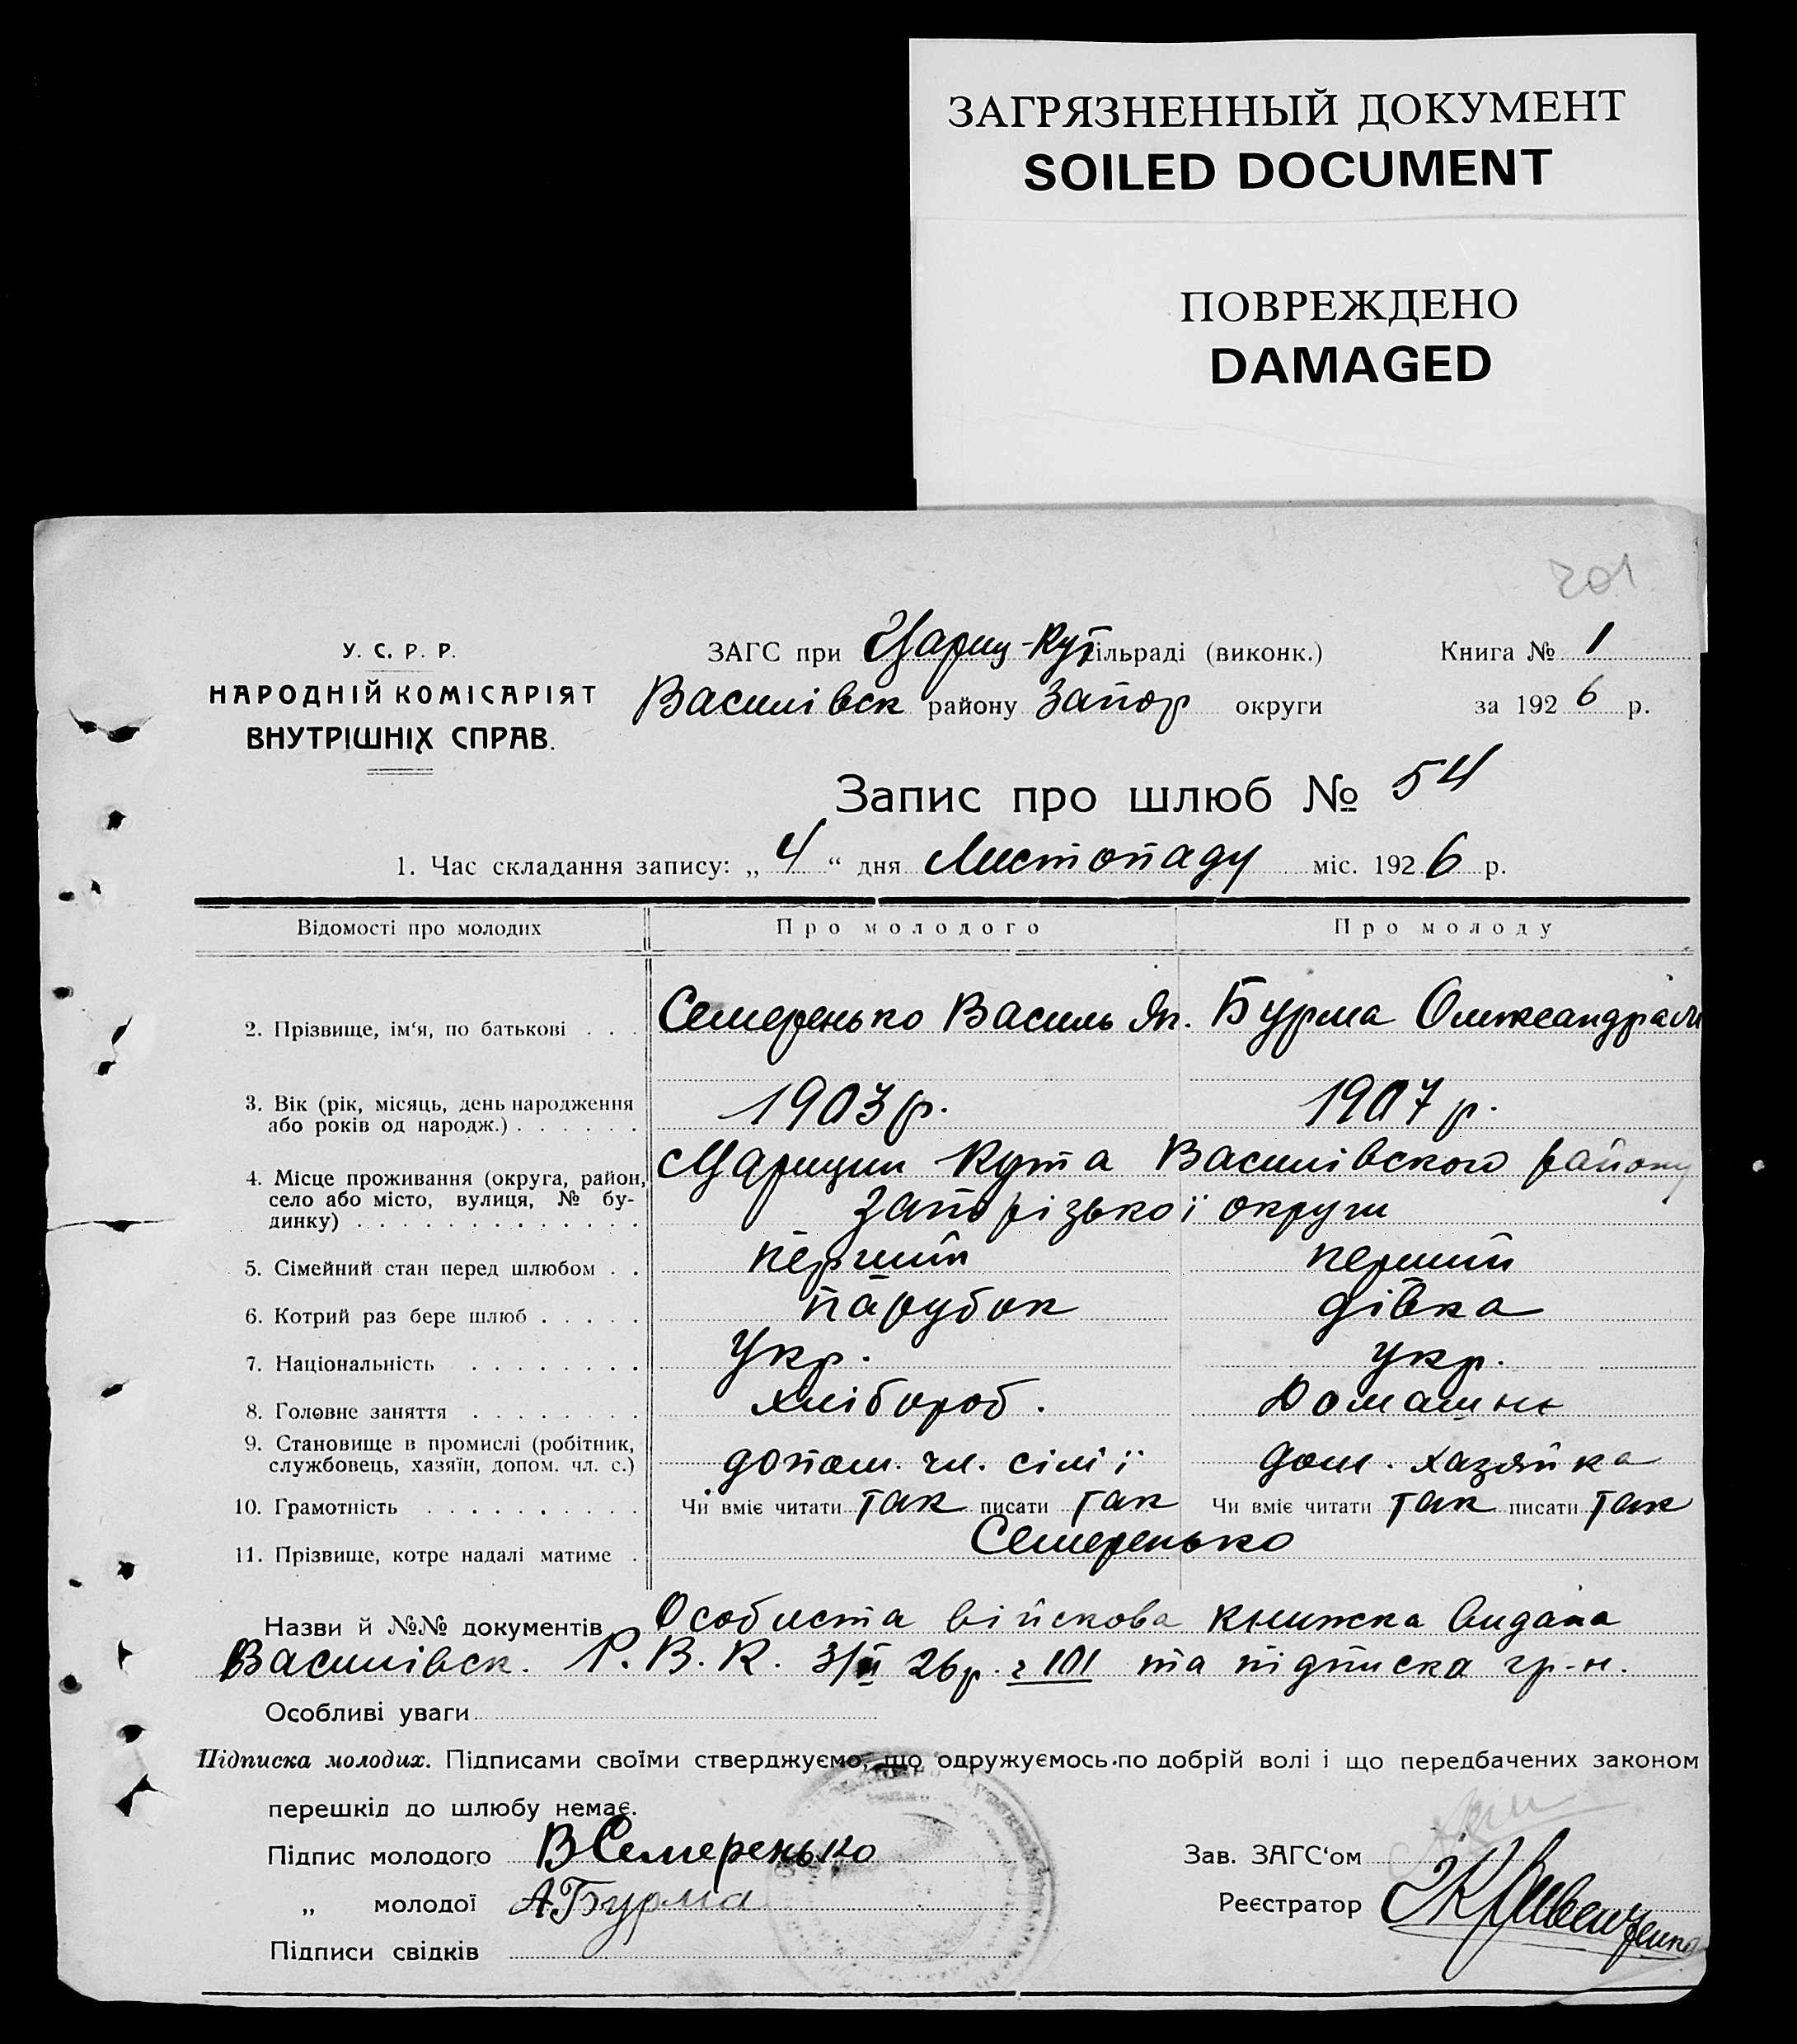 ЗАГРЯЗНЕННЫЙ ДОКУМЕНТ
SOILED DOCUMENT
ПОВРЕЖДЕНО
DAMAGED
201
У. С. Р. Р.
НАРОДНІЙ КОМІСАРІЯТ
ВНУТРІШНІХ СПРАВ.
ЗАГС при Цариц-Кут сільраді (виконк.)
Василівськ району Запор округи
Книга № 1
за 1926 р.
Запис про шлюб № 54
1. Час складання запису: „ 4 “ дня Листопаду міс. 1926 р.
Відомості про молодих Про молодого Про молоду
2. Прізвище, ім‘я, по батькові . . . Семеренько Василь Як. Бурма Олександра
3. Вік (рік, місяць, день народження
або років од народж.) . . . . . . 1903 р. 1907 р.
4. Місце проживання (округа, район,
село або місто, вулиця, № бу-
динку) . . . . . . . . . . . . .
Царицин Кута Василівского району
Запорізької округи
5. Сімейний стан перед шлюбом . . перший перший
6. Котрий раз бере шлюб . . . . . парубок дівка
7. Національність . . . . . . . . Укр. укр.
8. Головне заняття . . . . . . . . хлібороб. Домашнє
9. Становище в промислі (робітник,
службовець, хазяїн, допом. чл. с.) допом. чл. сімї дом. хазяйка
10. Грамотність . . . . . . . . . . Чи вміє читати так писати так Чи вміє читати так писати так
11. Прізвище, котре надалі матиме . Семеренько
Назви й №№ документів Особиста війскова книжка видана
Василівск. Р. В. К. 3/II 26р. та підписка гр-н.
Особливі уваги
Підписка молодих. Підписами своїми стверджуємо, що одружуємось по добрій волі і що передбачених законом
перешкід до шлюбу немає.
Підпис молодого ВСемеренько
„ молодої АБурма
Підписи свідків
Зав. ЗАГС‘ом
Реєстратор